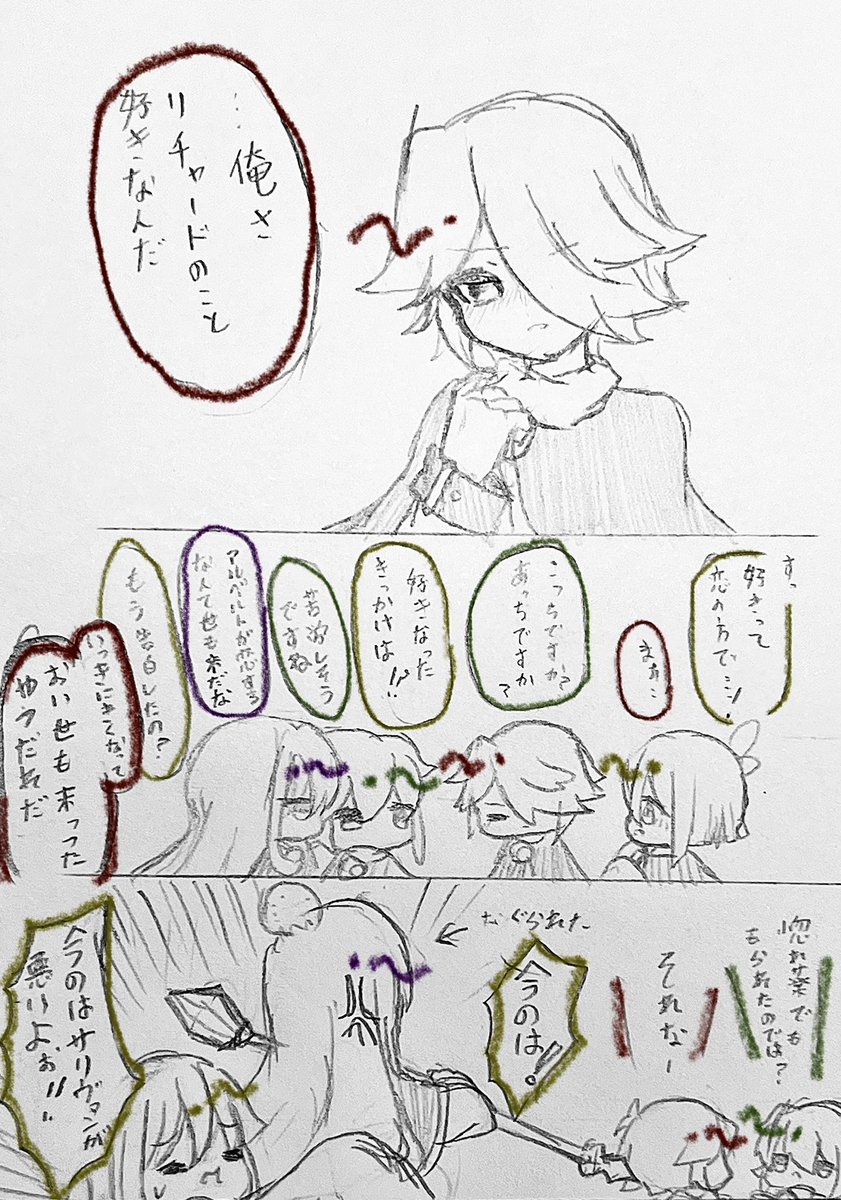 …俺さ
リチャードのこと
好きなんだ
すっ
好きって
恋の方でシン！
まぁ…
こっちですか？
あっちですか？
好きなった
きっかけは！！
苦労しそう
ですね
アルベルトが恋する
なんて世も末だな
もう告白したの？
いっきにきてなって
おい世も末つった
やつだれだ
惚れ薬でも
もられたのでは？
それなー
なぐられた
今のは！！
今のはサリヴァンが
悪いよぉ！！